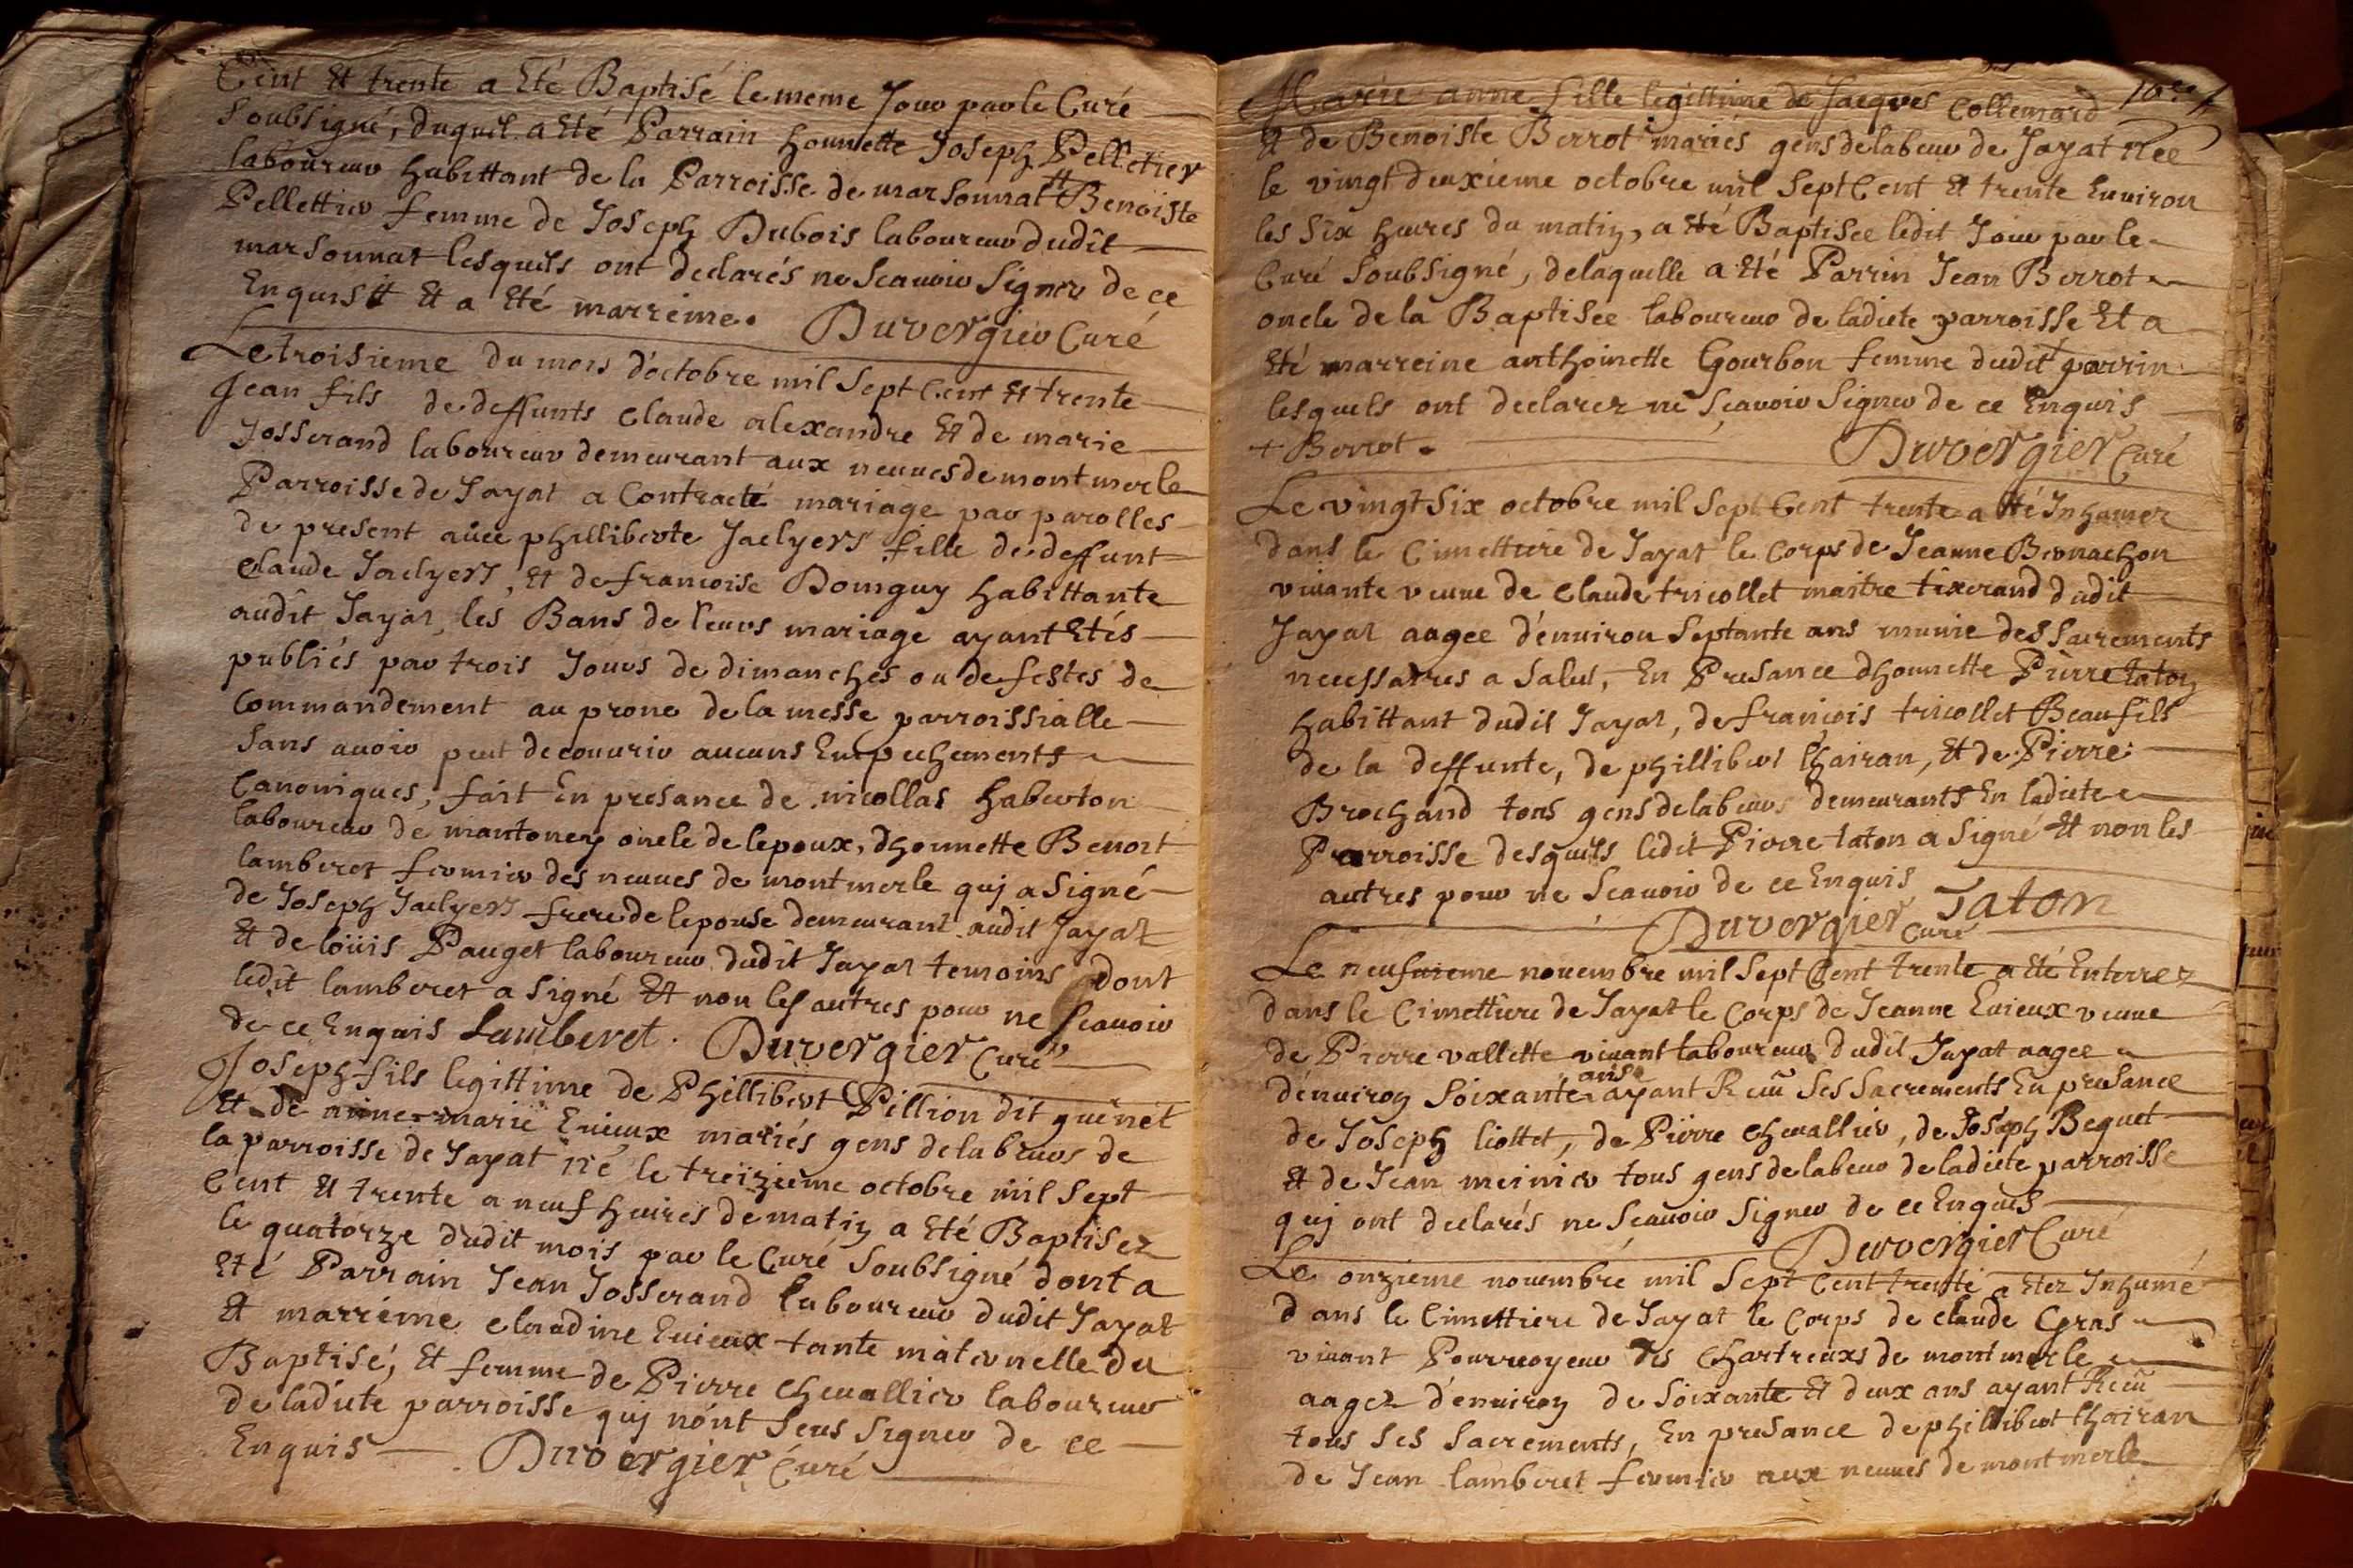 Cent Et trente a Eté Baptisé le meme Jour par le Curé
soubsigné, duquel a Eté Parrain honnette Joseph Pelletier
laboureur habittant de la Parroisse de marsonnat # Benoiste
Pellettier femme de Joseph Dubois laboureur dudit
marsonnat lesquels ont declarés ne scauoir signer de ce
Enquis # Et a Eté marreine. Duvergier Curé
Le troisieme du mois d'octobre mil sept Cent Et trente
Jean fils de deffunts Claude alexandre Et de marie
Josserand laboureur demeurant aux neuues de montmerle
Parroisse de Jayat a Contracté mariage par parolles
de present auec philliberte Jaclyers fille de deffunt
Claude Jaclyers, Et de francoise Donguy habittante
audit Jayat, les Bans de leurs mariage ayant Etés
publiés par trois Jours de dimanches ou de festes de
Commandement au prone de la messe parroissialle
sans auoir peut decouurir aucuns Empechements
Canoniques, fait En presance de nicollas haberton
laboureur de mantoney oncle de lepoux, dhonnette Benoit
lamberet fermier des neuues de montmerle quj a signé
de Joseph Jaclyers frere de lepouse demeurant audit Jayat
Et de loüis Pauget laboureur dudit Jayat temoins dont
ledit lamberet a signé Et non les autres pour ne scauoir
de ce Enquis Lamberet. Duvergier Curé
Joseph fils legittime de Phillibert Pillion dit guenet
Et de anne-marie Euieux mariés gens de labeurs de
la parroisse de Jayat né le treizieme octobre mil sept
Cent Et trente a neuf heures de matin a Eté Baptisez
le quatorze dudit mois par le Curé soubsigné dont a
Eté Parrain Jean Josserand laboureur dudit Jayat
Et marreine claudine Euieux tante maternelle du
Baptisé, Et femme de Pierre cheuallier laboureur
de ladicte parroisse quj n'ont seus signer de ce
Enquis Duvergier Curé
Marie anne fille legittime de Jacques Collemard
Et de Benoiste Berrot mariés gens de labeur de Jayat née
le vingt deuxieme octobre mil sept Cent Et trente Enuiron
les six heures du matin, a Eté Baptisée ledit Jour par le
Curé soubsigné, de laquelle a Eté Parrin Jean Berrot
oncle de la Baptisée laboureur de ladicte parroisse Et a
Eté marreine anthoinette Gourbon femme dudit + parrin
lesquels ont declarez ne sçauoir signer de ce Enquis
+ Berrot. Duvergier Curé
Le vingt six octobre mil sept Cent trente a Eté Inhumer
dans le Cimettiere de Jayat le Corps de Jeanne Bernachon
viuante veuue de Claude tricollet maitre tixerand dudit
Jayat aagee d'enuiron septante ans munie des sacrements
necessaires a salut, En Presance dhonnette Pierre taton
habittant dudit Jayat, de françois tricollet Beaufils
de la deffunte, de phillibert Chairan, Et de Pierre
Brochand tous gens de labeurs demeurants En ladicte
Parroisse desquels ledit Pierre taton a signé Et non les
autres pour ne scauoir de ce Enquis Taton
Duvergier Curé
Le neufuieme nouembre mil sept Cent trente a Eté Enterrez
dans le Cimettiere de Jayat le Corps de Jeanne Euieux veuue
de Pierre vallette viuant laboureur dudit Jayat aagee
d'enuiron soixante ans ayant Receu ses sacrements En presance
de Joseph liottet, de Pierre cheuallier, de Joseph Bequet
Et de Jean meinier tous gens de labeur de ladicte parroisse
quj ont declarés ne sçauoir signer de ce Enquis
Duvergier Curé
Le onzieme nouembre mil sept Cent trente a Etez Inhumé
dans le Cimettiere de Jayat le Corps de claude Gras
viuant Pourvoyeur des Chartreuxs de montmerle
aagez d'enuiron de soixante Et deux ans ayant Receu
tous ses sacrements, En presance de phillibert Chairan
de Jean lamberet fermier aux neuues de montmerle